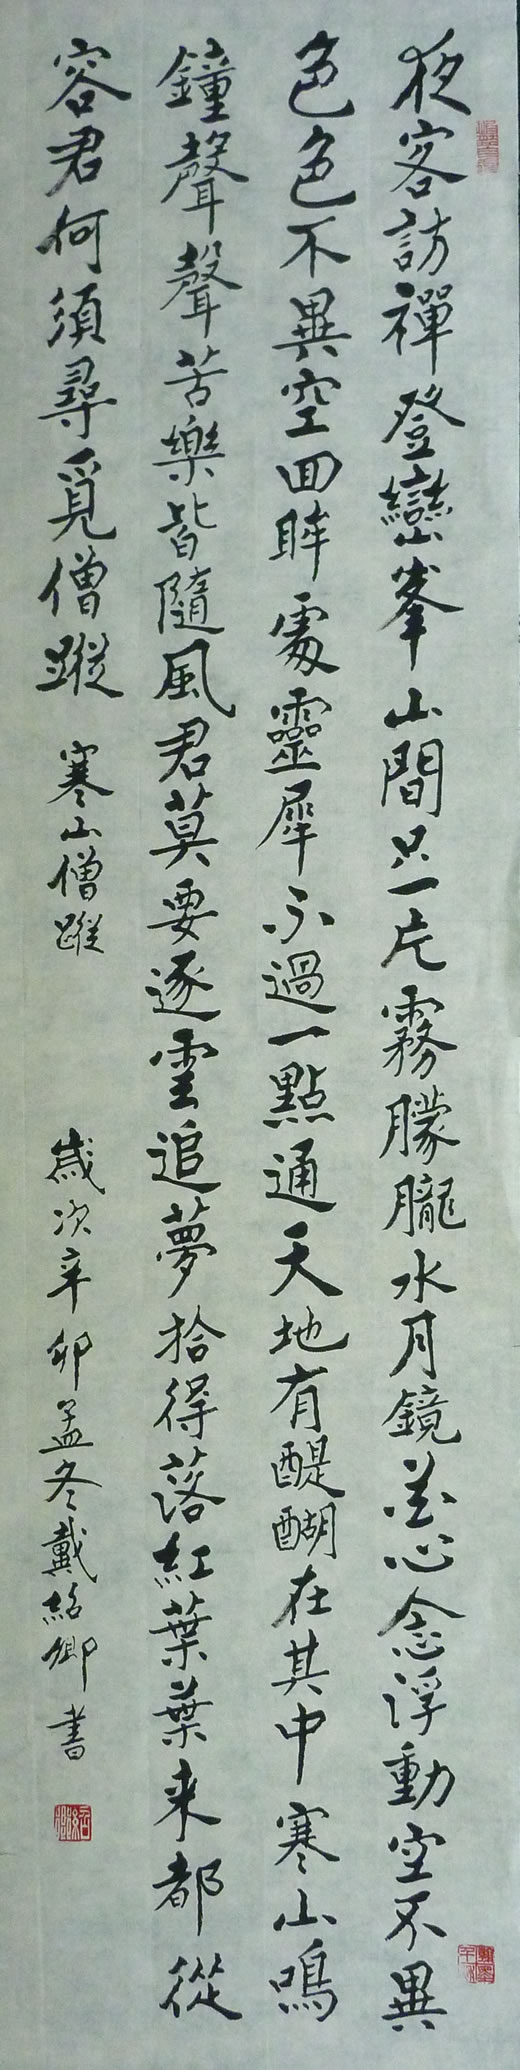 夜客訪禪登巒峯山間只一片霧朦朧水月鏡花心念浮動空不異
色色不異空回眸處靈犀不過一點通天地有醍醐在其中寒山鳴
鐘聲聲苦樂皆隨風君莫要逐雲追夢拾得落紅葉葉来都從
容君何須尋覓僧蹤
寒山僧蹤
歲次辛卯孟冬戴紹卿書